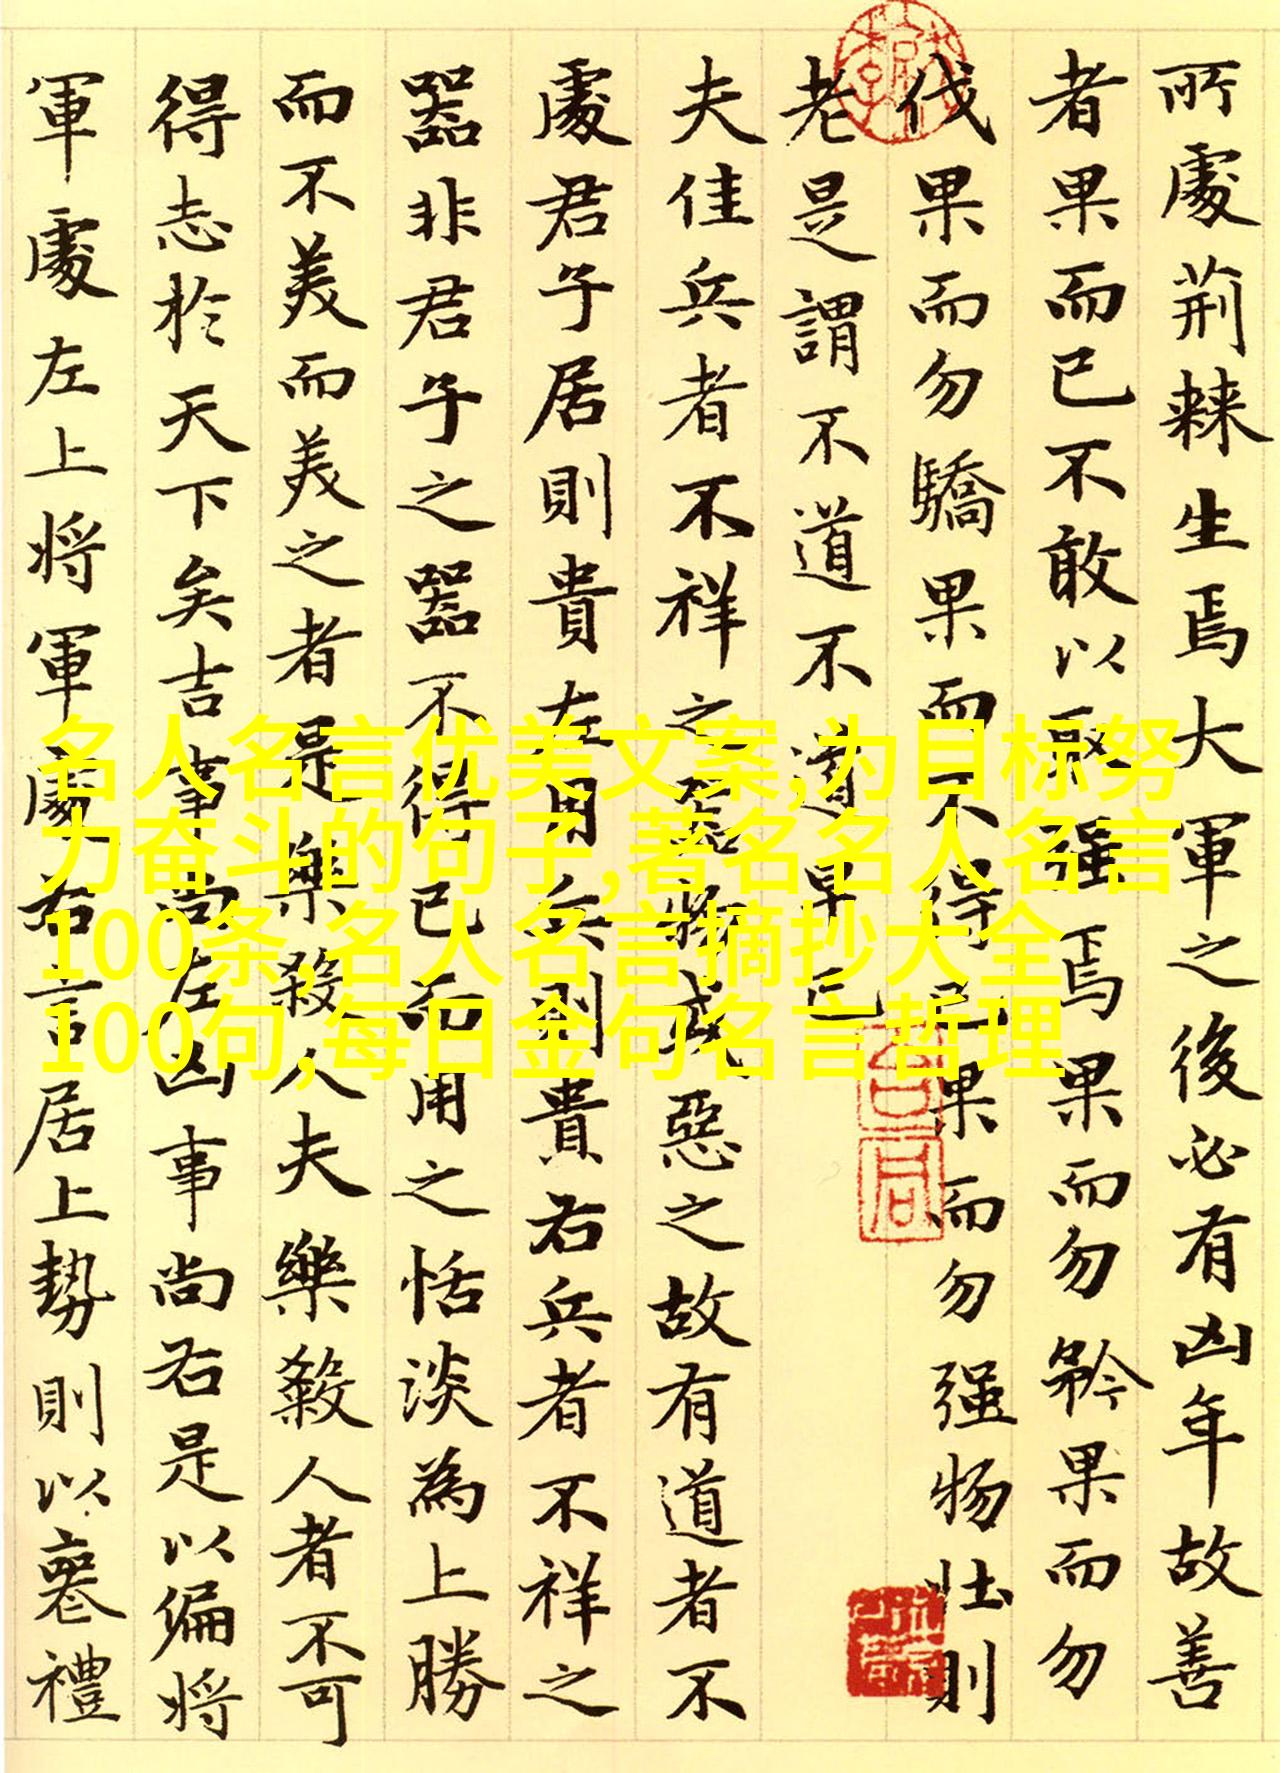 所處荊棘生焉大軍之後必有凶年故善
者果而已不敢以取强焉果而勿矜果而勿
伐果而勿驕果而不得已果而勿强物壮則
老是謂不道不道早已
夫佳兵者不祥之器物或惡之故有道者不
處君子居則貴左用兵則貴右兵者不祥之
器非君子之器不得已而用之恬淡為上勝
而不美而美之者是樂殺人夫樂殺人者不可
得志於天下矣吉事尚左凶事尚右是以偏将
軍處左上将軍處右言居上勢則以喪禮
名人名言优美文案,为目标努
力奋斗的句子,著名名人名言
100条,名人名言摘抄大全
100句,每日金句名言哲理